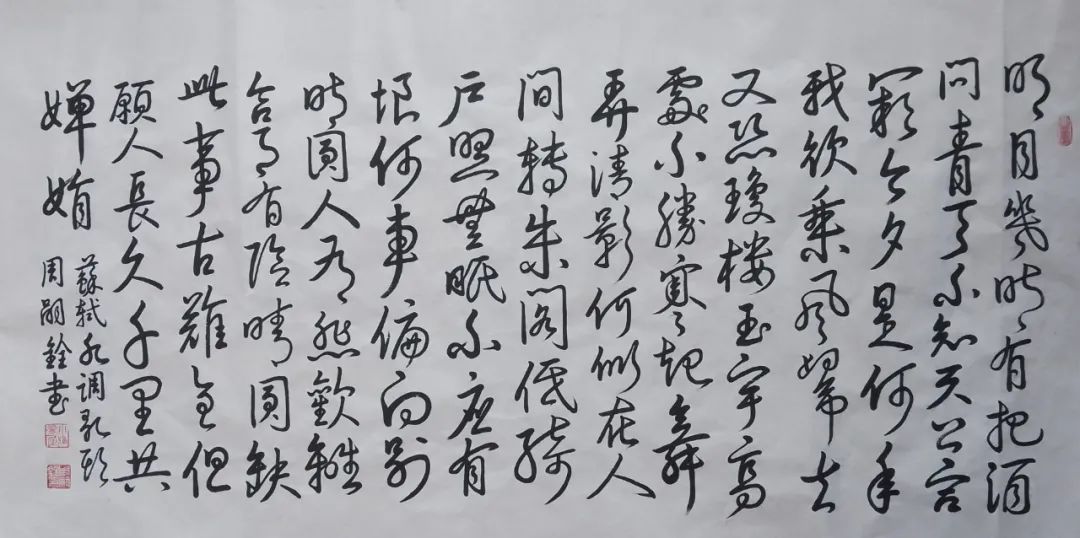 明月幾時有把酒
問青天不知天上宮
闕今夕是何年
我欲乘風歸去
又恐瓊樓玉宇高
處不勝寒起舞
弄清影何似在人
間轉朱閣低綺
戶照無眠不應有
恨何事偏向別
時圓人有悲歡離
合月有陰晴圓缺
此事古難全但
願人長久千里共
嬋娟
蘇軾水調歌頭
周嗣銓書